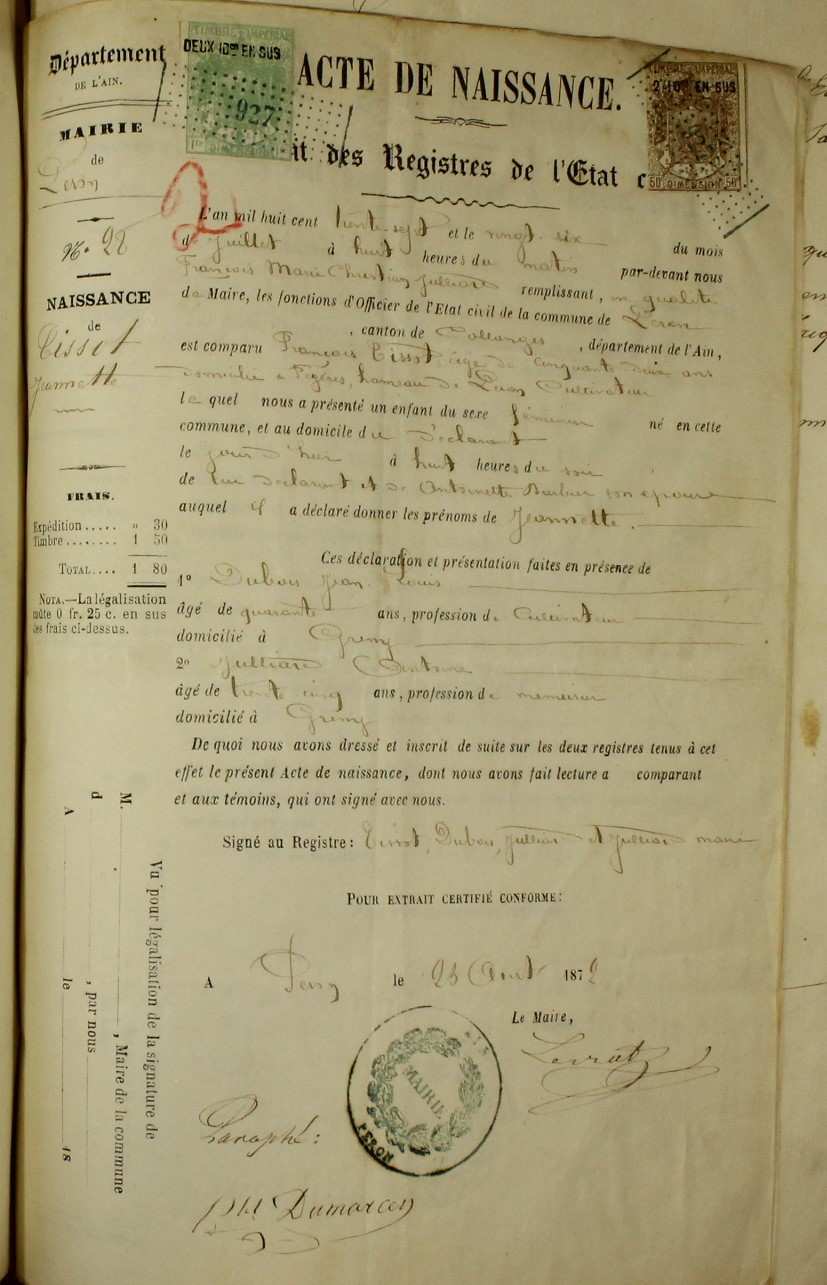 Département
DE L'AIN.
MAIRIE
de
Péron
N.° 22
NAISSANCE
de
Tissot
Jeannette
FRAIS.
Expédition ..... " 30
Timbre ........ 1 50
TOTAL.... 1 80
NOTA.—La légalisation
coûte 0 fr. 25 c. en sus
des frais ci-dessus.
TIMBRE IMPÉRIAL
DEUX 10mes EN SUS
927
ACTE DE NAISSANCE.
TIMBRE IMPÉRIAL
2/10es EN SUS
50c DIMENSION 50c
it des Registres de l'Etat c
L'an mil huit cent trente sept et le vingt six du mois
de Juillet à huit heures du matin par-devant nous
François Marie Julliard remplissant, en qualité
de Maire, les fonctions d'Officier de l'Etat civil de la commune de Péron
, canton de Collonges , département de l'Ain,
est comparu François Tissot âgé de cinquante deux ans
domicilié à Feigères, hameau de Péron Cultivateur
le quel nous a présenté un enfant du sexe féminin né en cette
commune, et au domicile du Déclarant
le jour d'hier à huit heures du soir
de lui déclarant et de Antoinette Barbier son épouse
auquel il a déclaré donner les prénoms de Jeannette.
Ces déclaration et présentation faites en présence de
1° Dubois Jean Louis
âgé de quarante ans, profession de Cultivateur
domicilié à Greny
2° Julliard Antoine
âgé de trente cinq ans, profession de menuisier
domicilié à Greny
De quoi nous avons dressé et inscrit de suite sur les deux registres tenus à cet
effet le présent Acte de naissance, dont nous avons fait lecture a comparant
et aux témoins, qui ont signé avec nous.
Signé au Registre: Tissot, Dubois, Julliard et Julliard maire
POUR EXTRAIT CERTIFIÉ CONFORME:
A Péron le 23 Août 1872
Le Maire,
Levrat
MAIRIE
PÉRON
Paraphé:
Dumarest
Vu pour légalisation de la signature de
M. , Maire de la commune
d , par nous
A le 18